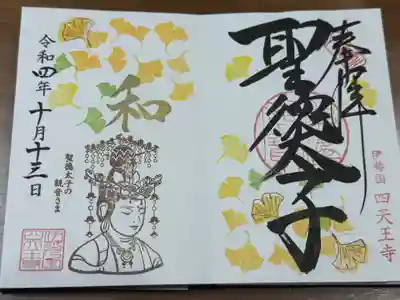 奉拝
聖徳太子
伊勢国 四天王寺
和
聖徳太子の
観音さま
令和四年 十月十三日